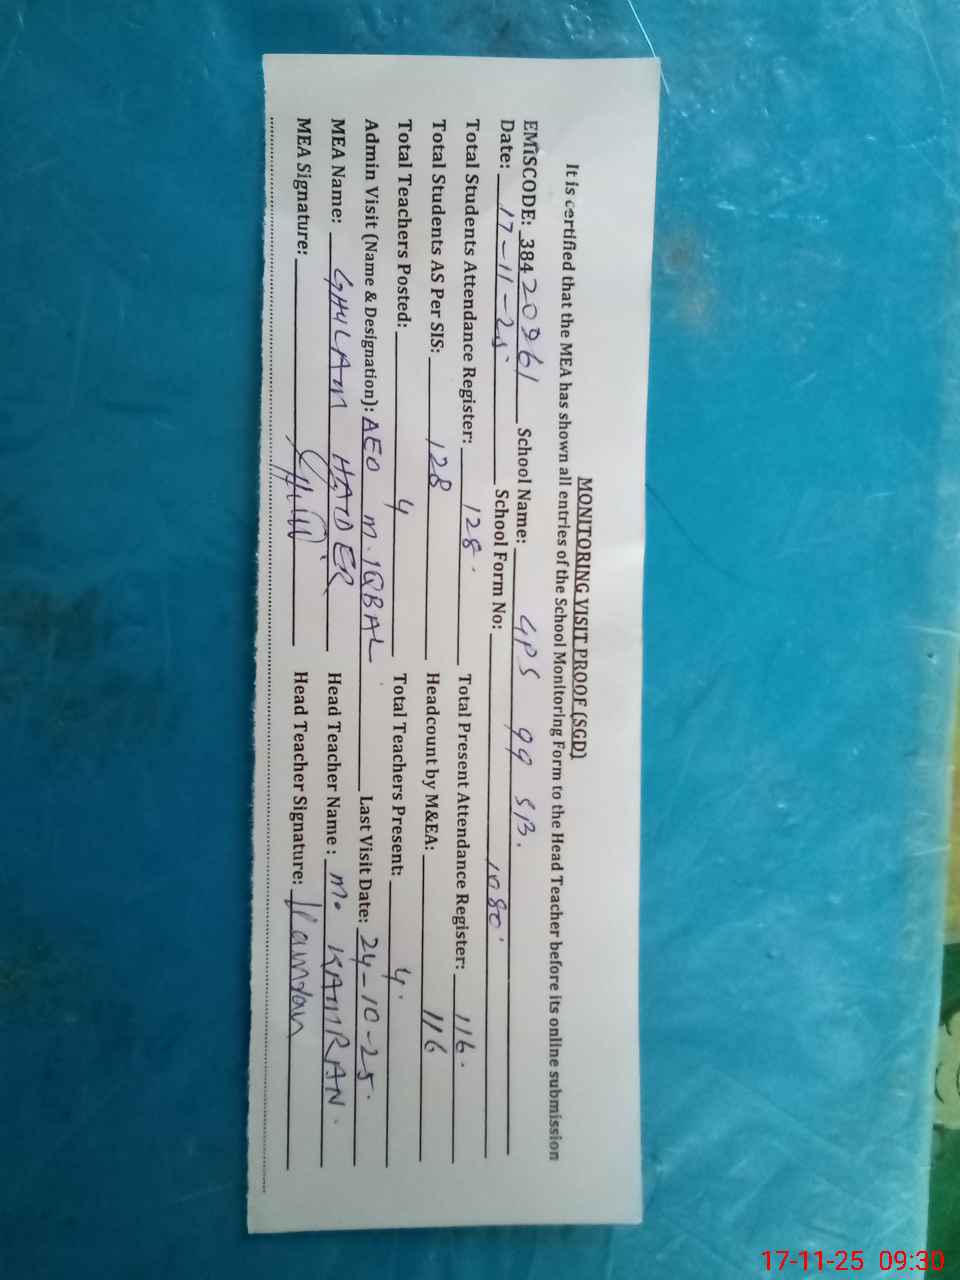 MONITORING VISIT PROOF (SGD)
It is certified that the MEA has shown all entries of the School Monitoring Form to the Head Teacher before its online submission
EMISCODE: 38420961 School Name: GPS 99 SB.
Date: 17-11-25 School Form No: 1080
Total Students Attendance Register: 128. Total Present Attendance Register: 116.
Total Students AS Per SIS: 128 Headcount by M&EA: 116
Total Teachers Posted: 4 Total Teachers Present: 4.
Admin Visit (Name & Designation): AEO M.IQBAL Last Visit Date: 24-10-25.
MEA Name: GHULAM HAIDER Head Teacher Name : M. KAMRAN.
MEA Signature: Head Teacher Signature: Kamran
17-11-25 09:30